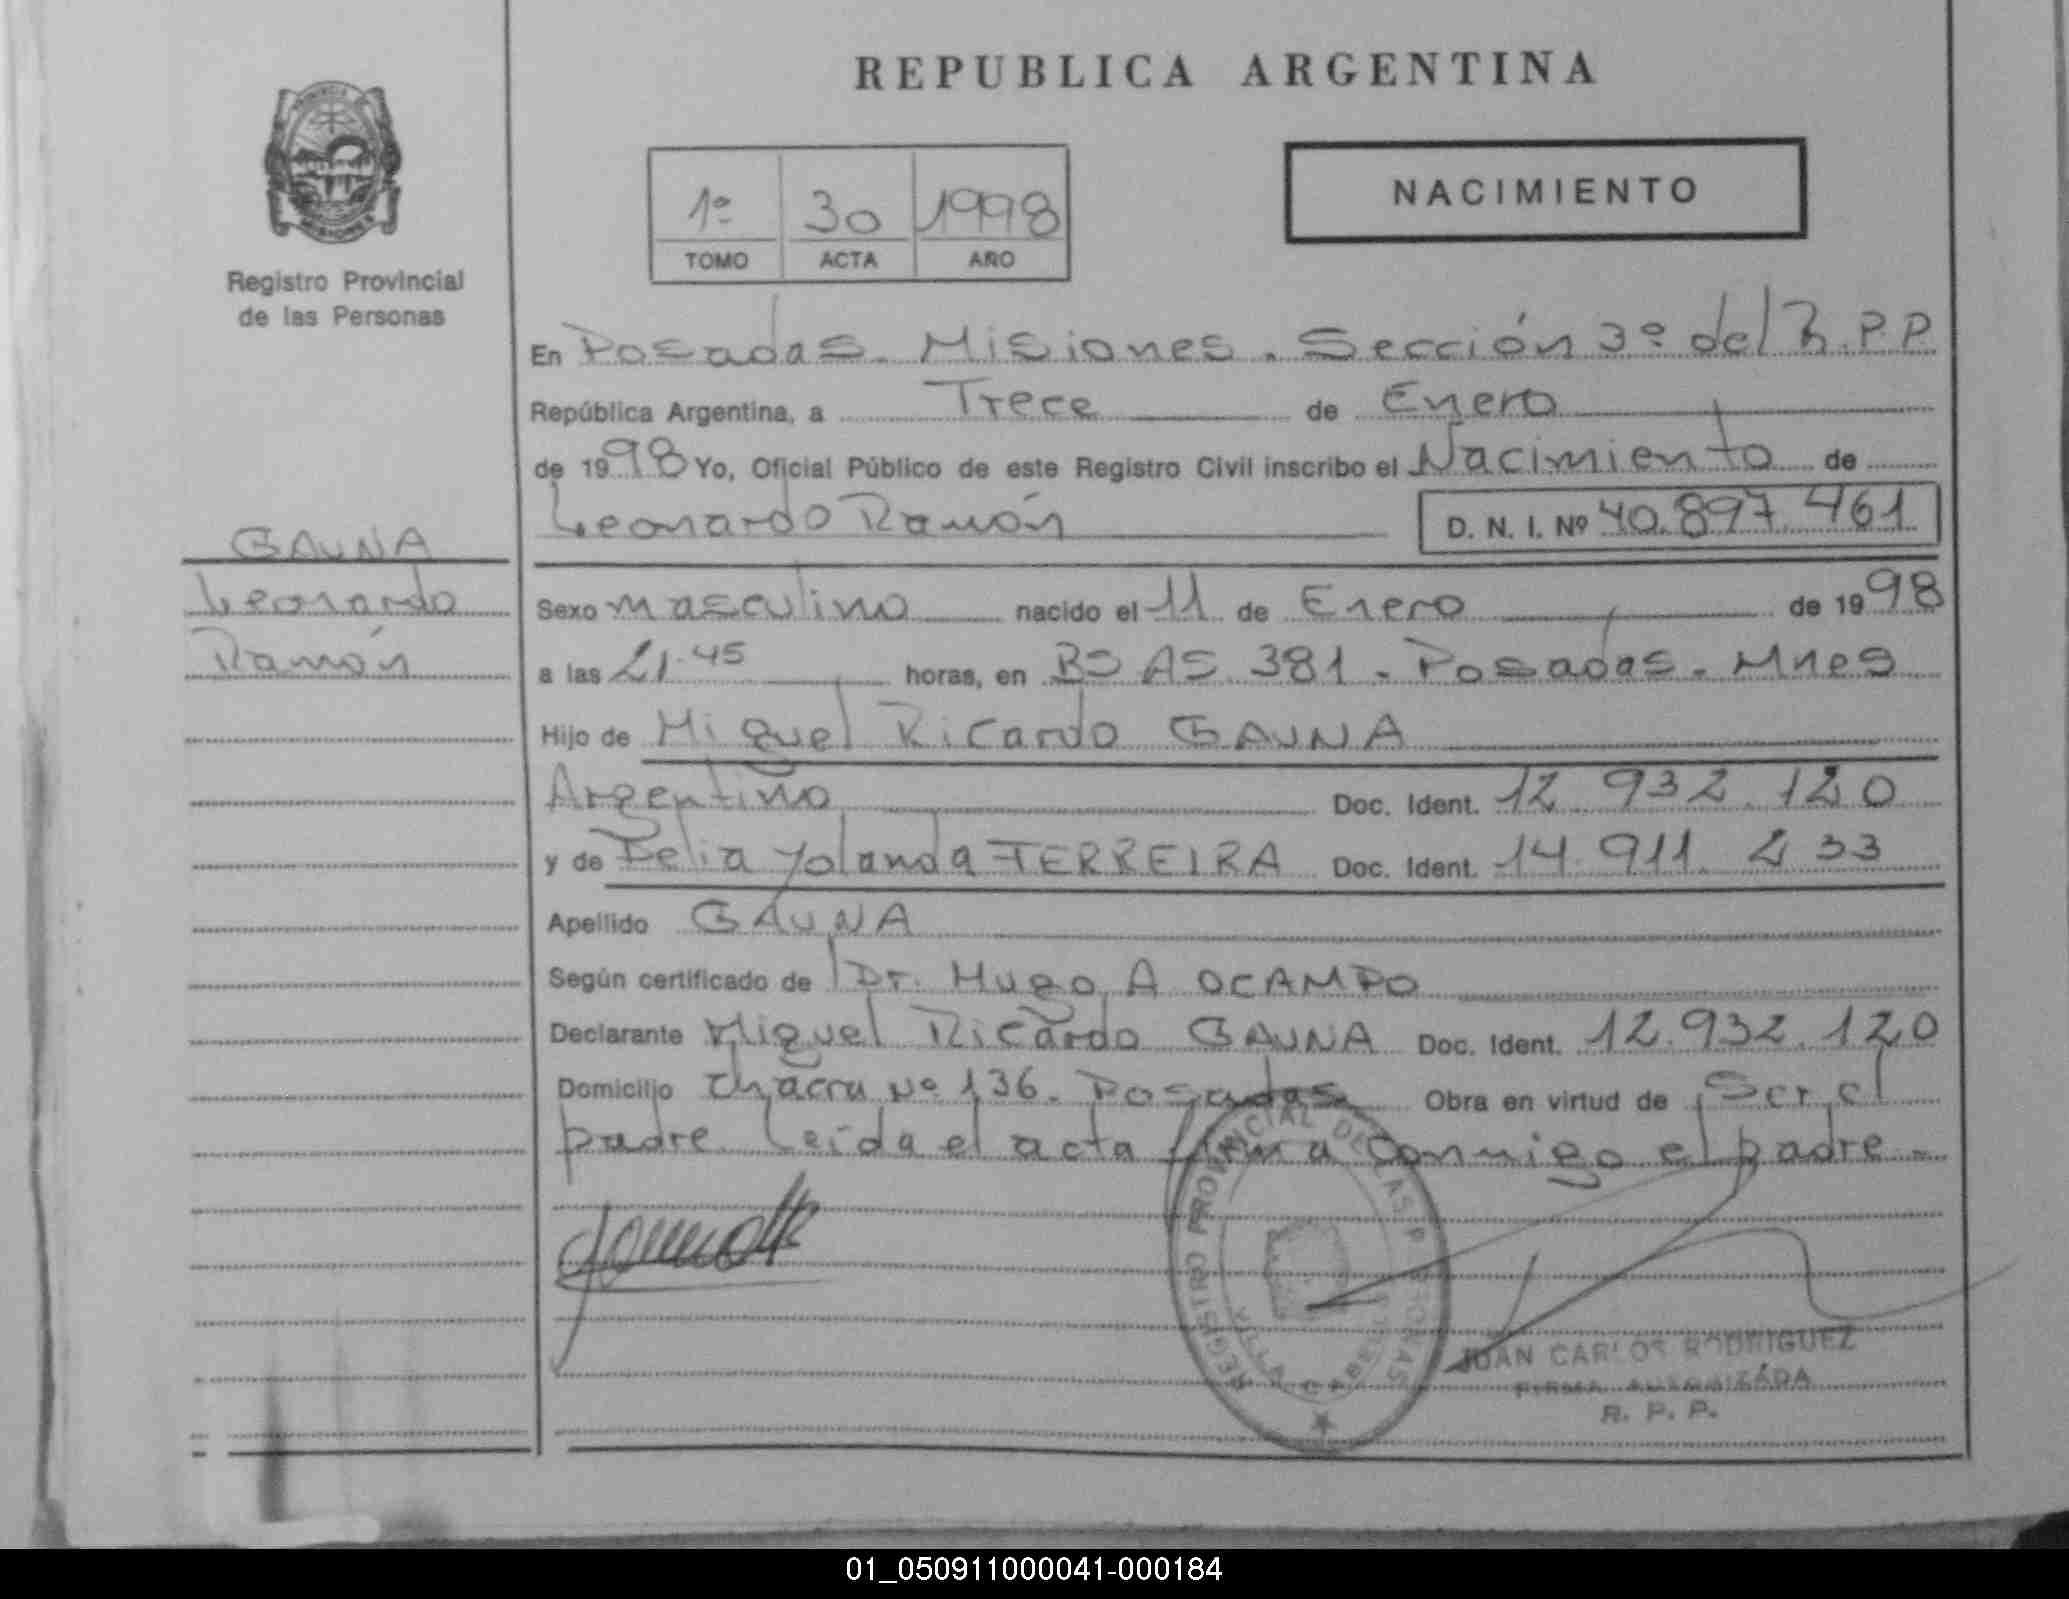 REPUBLICA ARGENTINA
NACIMIENTO
1º 30 1998
TOMO ACTA AÑO
Registro Provincial
de las Personas
GAUNA
Leonardo
Ramón
En Posadas - Misiones - Sección 3º del R.P.P
República Argentina, a Trece de Enero
de 1998 Yo, Oficial Público de este Registro Civil inscribo el Nacimiento de
Leonardo Ramón D. N. I. Nº 40.897.461
Sexo masculino nacido el 11 de Enero de 1998
a las 21.45 horas, en BS AS 381 - Posadas - Mnes
Hijo de Miguel Ricardo GAUNA
Argentino Doc. Ident. 12.932.120
y de Delia Yolanda FERREIRA Doc. Ident. 14.911.233
Apellido GAUNA
Según certificado de Dr. Hugo A OCAMPO
Declarante Miguel Ricardo GAUNA Doc. Ident. 12.932.120
Domicilio Chacra Nº 136 - Posadas Obra en virtud de Ser el
padre. Leída el acta firma conmigo el padre -
REGISTRO PROVINCIAL DE LAS PERSONAS
VILLA
JUAN CARLOS RODRIGUEZ
FIRMA AUTORIZADA
R. P. P.
01_050911000041-000184